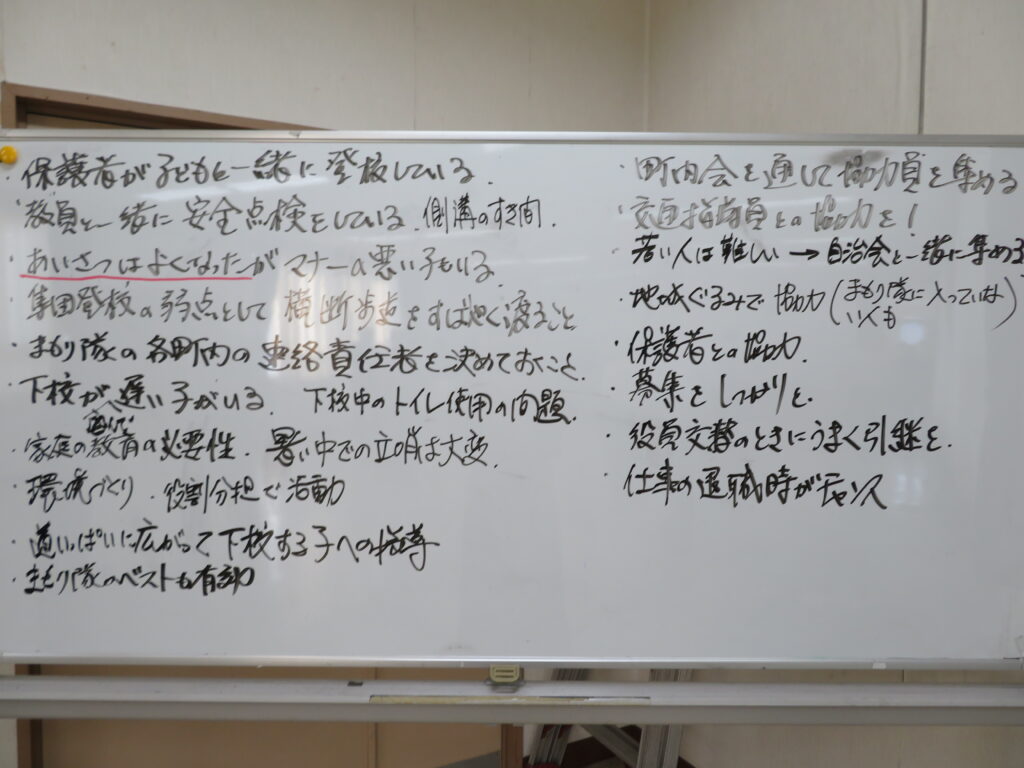 ・保護者が子どもと一緒に登校している.
・教員と一緒に安全点検をしている.側溝のすき間.
・あいさつはよくなったがマナーの悪い子もいる.
・集団登校の弱点として横断歩道をすばやく渡ること
・まもり隊の各町内の連絡責任者を決めておくこと.
・下校が遅い子がいる. 下校中のトイレ使用の問題.
・家庭の教育の必要性.暑い中での立哨は大変.
・環境づくり ・役割分担で活動
・道いっぱいに広がって下校する子への指導
・まもり隊のベストも有効
・町内会を通して協力員を集める
・交通指導員との協力を!
・若い人は難しい→自治会と一緒に集める
・地域ぐるみで協力(まもり隊に入っていない人も)
・保護者との協力.
・募集をしっかりと.
・役員交替のときにうまく引継を.
・仕事の退職時がチャンス